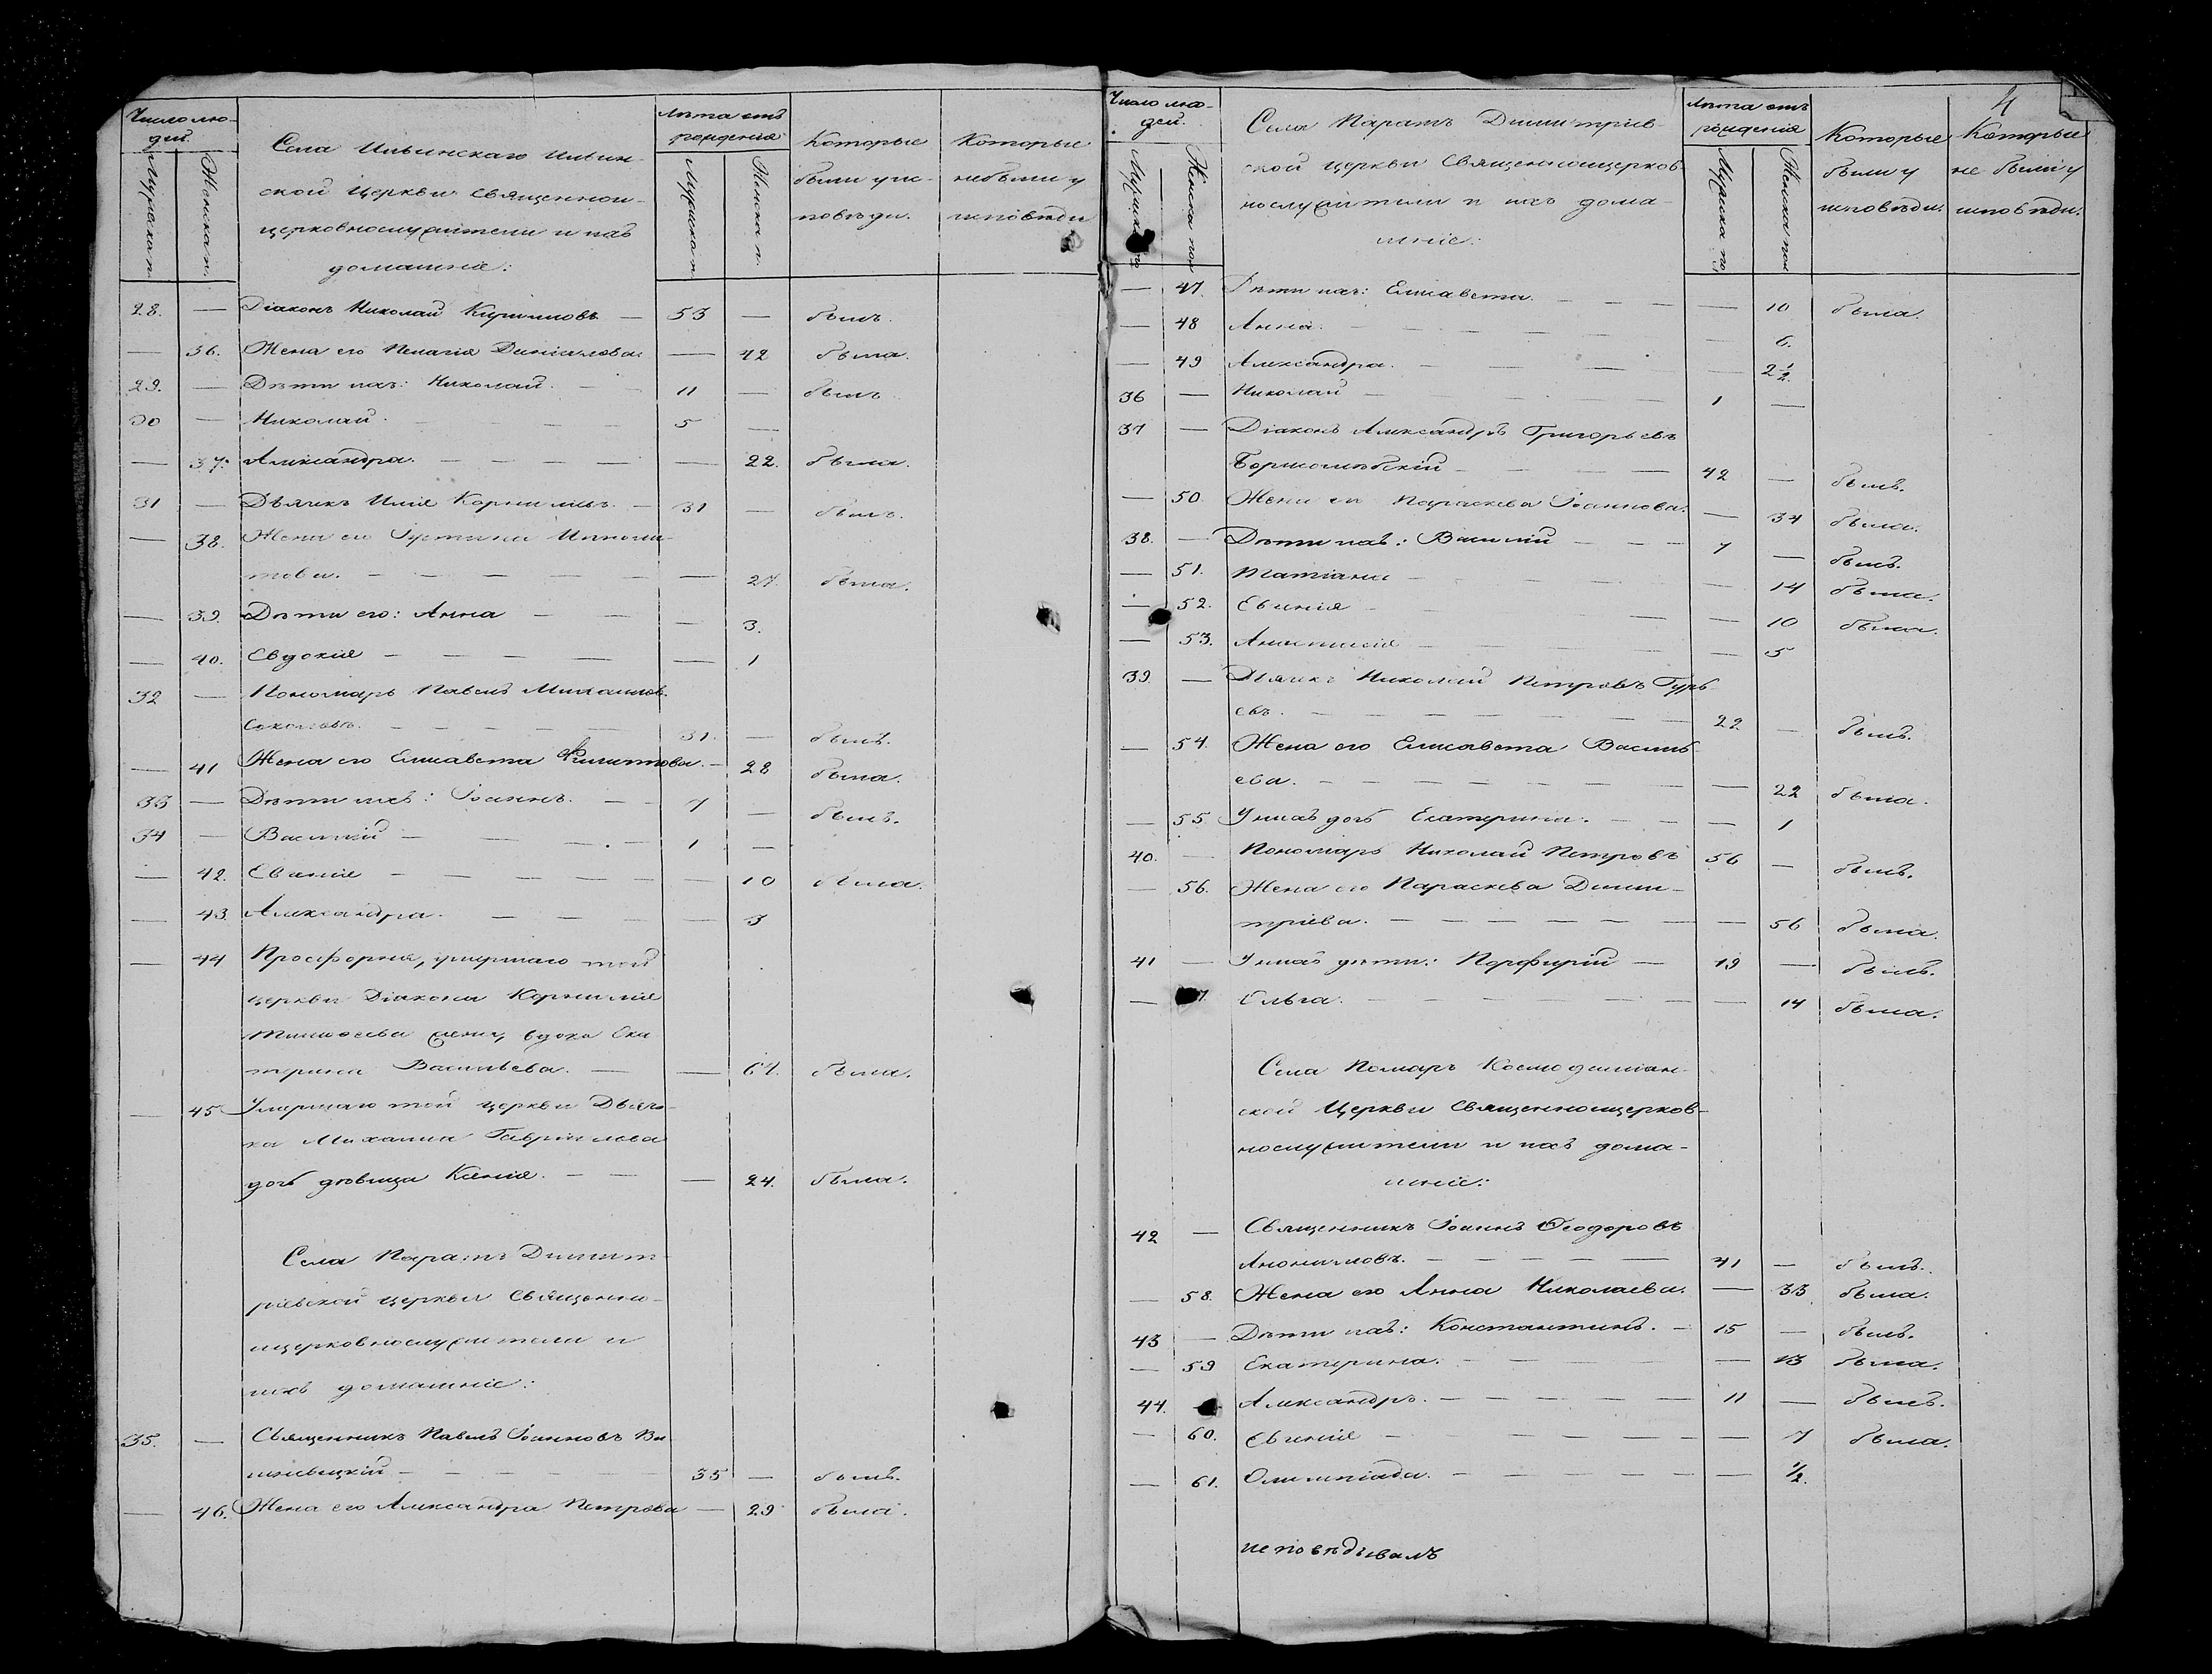 Число лю-
дей.
Мужска п.
Женска п.
Села Ильинскаго Ильин-
ской церкви священнои-
церковнослужители и ихъ
домашніе:
Лѣта отъ
рожденія
Мужска п.
Женска п.
Которые
были у ис-
повѣди.
Которые
небыли у
исповѣди
28. — Діаконъ Николай Кириловъ — 53 — былъ.
— 36. Жена его Пелагія Даніилова. — 42 была.
29. — Дѣти ихъ: Николай. — 11 — былъ
30 — Николай. — 5 —
— 37. Александра. — — 22. была.
31 — Дьячекъ Илія Корниліевъ. — 31 — былъ.
— 38. Жена его Іустина Иппали-
това. — — 27. была.
— 39. Дѣти его: Анна — — 3.
— 40. Евдокія — — 1
32 — Пономарь Павелъ Михаиловъ
Соколовъ. — 31. — былъ.
— 41 Жена его Елисавета Филиппова. — 28 была.
33 — Дѣти ихъ: Іоаннъ. — 7 — былъ.
34 — Василій — 1 —
— 42. Евгенія — — 10 была.
— 43. Александра. — — 3
— 44 Просфорня, умершаго той
церкви Діакона Корнилія
Тимофеева жена, вдова Ека
терина Васильева. — — 67. была.
— 45 Умершаго той церкви Дьяч-
ка Михаила Гавриилова
дочь дѣвица Ксенія. — — 24. была.
Села Паратъ Димит-
ріевской церкви Священно-
ицерковнослужители и
ихъ домашніе:
35. — Священникъ Павелъ Іоанновъ Ви
шневецкій — 35 — былъ.
— 46. Жена его Александра Петрова — 29 была.
4
Число лю-
дей.
Мужска по
Женска пол
Села Паратъ Димитріев-
ской церкви Священноицерков-
нослужители и ихъ дома-
шніе:
Лѣта отъ
рожденія
Мужска по
Женска пол
Которые
были у
исповѣди.
Которые
не были у
исповѣди.
— 47. Дѣти ихъ: Елисавета. — — 10 была.
— 48 Анна. — — 6.
— 49 Александра. — — 2 1/2.
36 — Николай — 1 —
37 — Діаконъ Александръ Григорьевъ
— 42 — былъ.
— 50. Жена его Параскева Іоаннова. — 34 была.
38. — Дѣти ихъ: Василій — 7 — былъ.
— 51. Татіана — — 14 была.
— 52. Евгенія — — 10 была.
— 53. Анастасія — — 5
39. — Дьячекъ Николай Петровъ Гурь-
евъ. — 22 — былъ.
— 54. Жена его Елисавета Василь
ева. — — 22 была.
— 55 У нихъ дочь Екатерина. — — 1
40. — Пономарь Николай Петровъ 56 — былъ.
— 56. Жена его Параскева Дими-
тріева. — — 56 была.
41 — У нихъ дѣти: Порфирій — 19 — былъ.
— 7. Ольга. — — 14 была.
Села Помаръ Космодаміан-
ской Церкви Священноицерков-
нослужители и ихъ дома-
шніе:
42 — Священникъ Іоаннъ Ѳеодоровъ
— 41 — былъ.
— 58. Жена его Анна Николаева. — 33 была.
43 — Дѣти ихъ: Константинъ. — 15 — былъ.
— 59 Екатерина. — — 13 была.
44. Александръ. — 11 — былъ.
— 60. Евгенія — — 7 была.
— 61. Олимпіада. — — 1/2.
исповѣдывалъ